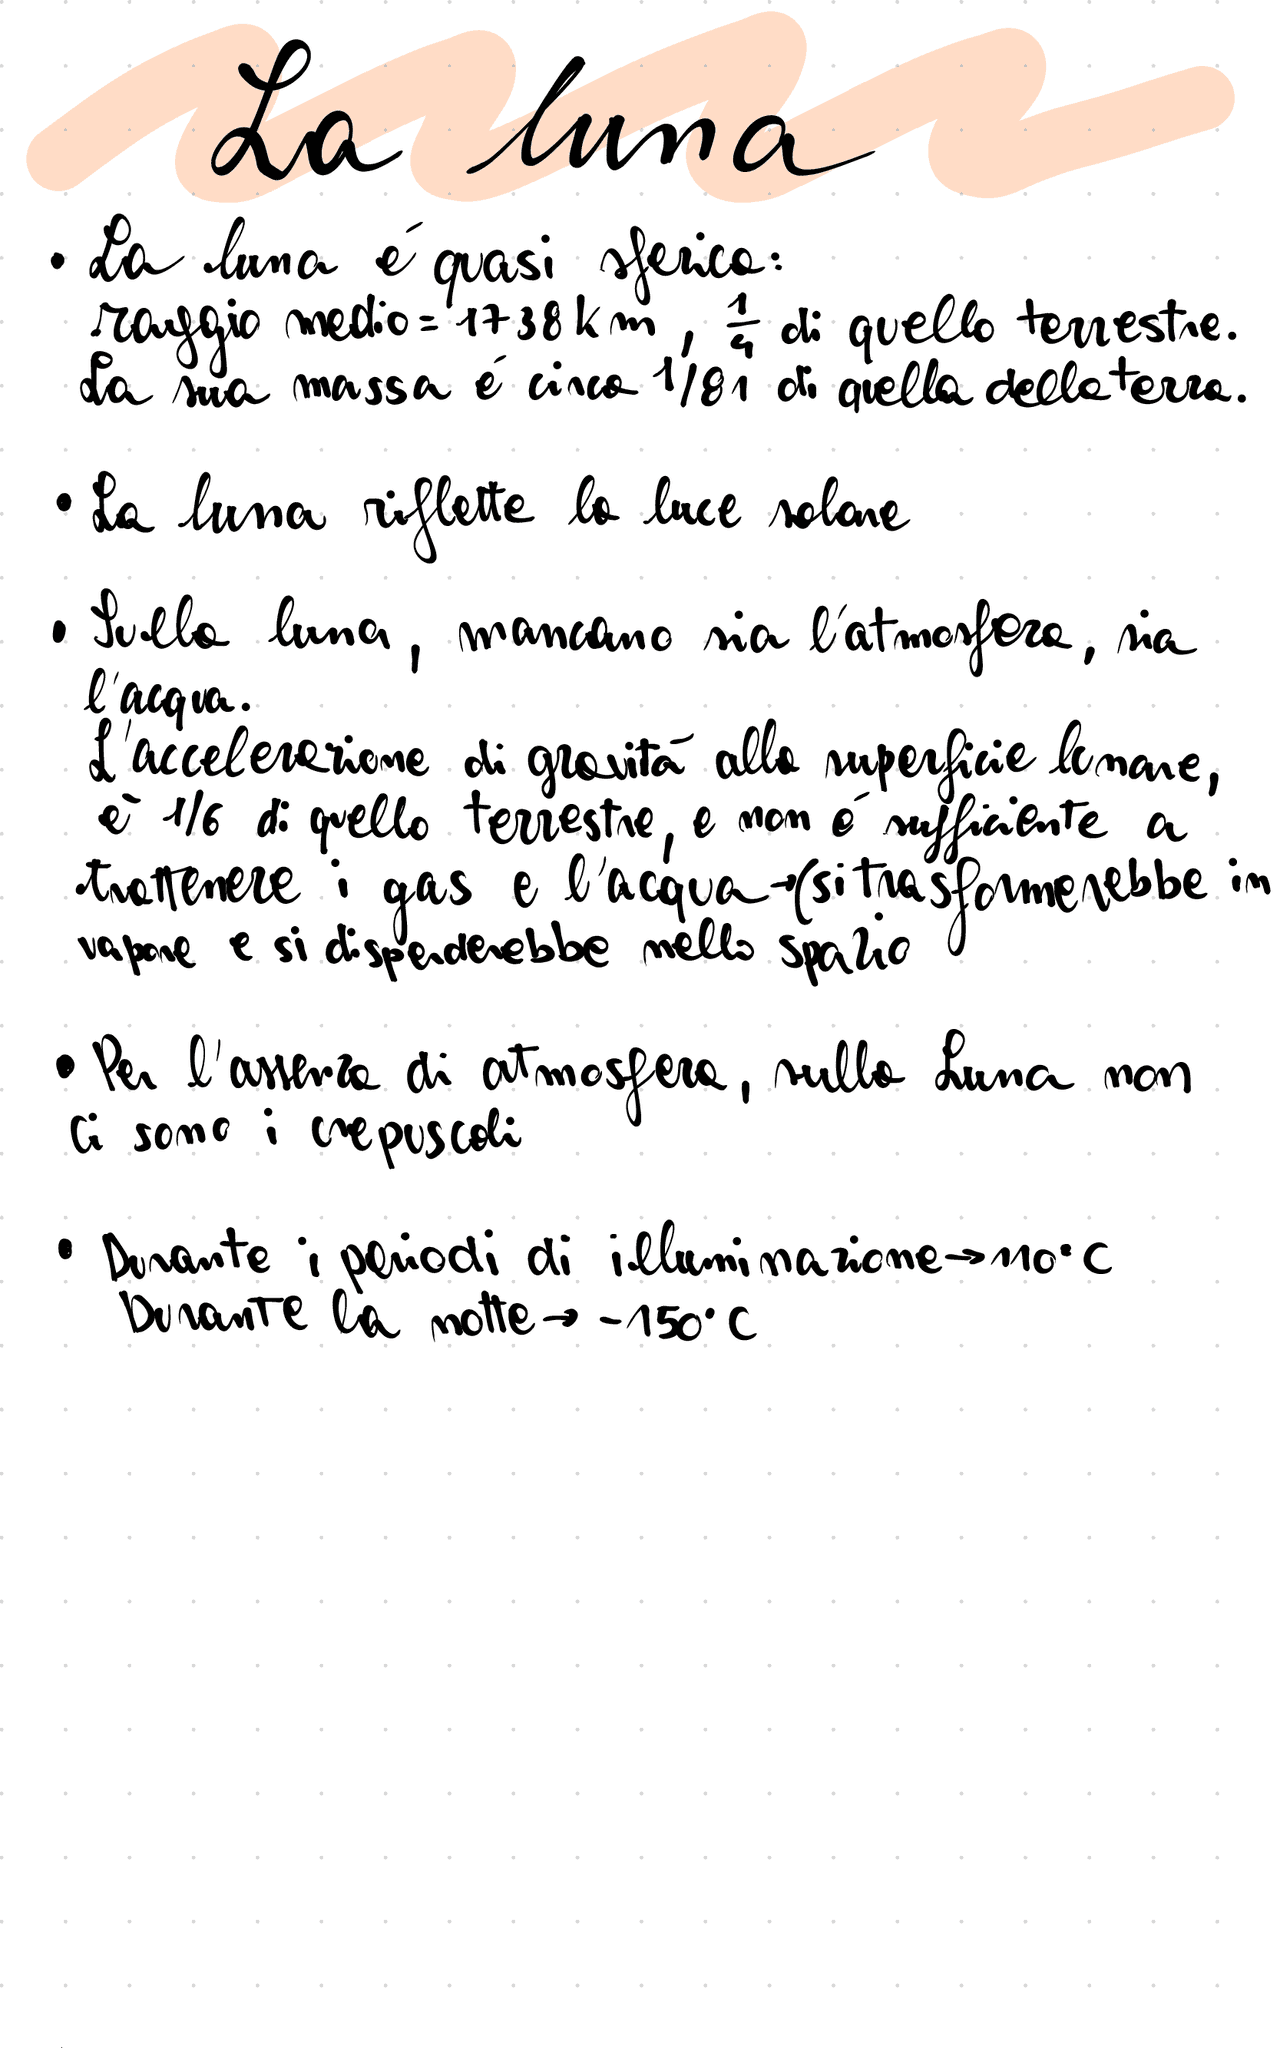 La luna
• La luna é quasi sferica:
raggio medio = 1738 km, 1/4 di quello terrestre.
La sua massa é circa 1/81 di quella della terra.
• La luna riflette la luce solare
• Sulla luna, mancano sia l'atmosfera, sia
l'acqua.
L'accelerazione di gravità alla superficie lunare,
è 1/6 di quello terrestre, e non é sufficiente a
trattenere i gas e l'acqua → (si trasformerebbe in
vapore e si disperderebbe nello spazio
• Per l'assenza di atmosfera, sulla Luna non
ci sono i crepuscoli
• Durante i periodi di illuminazione → 110°C
Durante la notte → -150°C